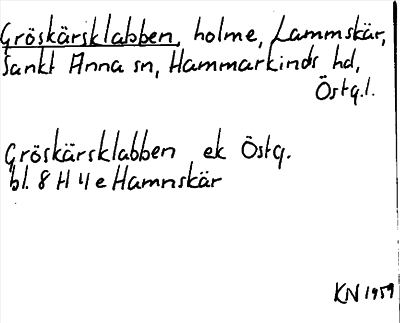 Gröskärsklabben, holme, Lammskär,
Sankt Anna sn, Hammarkinds hd,
Östg.l.
Gröskärsklabben ek Östg.
bl. 8 H 4 e Hamnskär
KN 1959